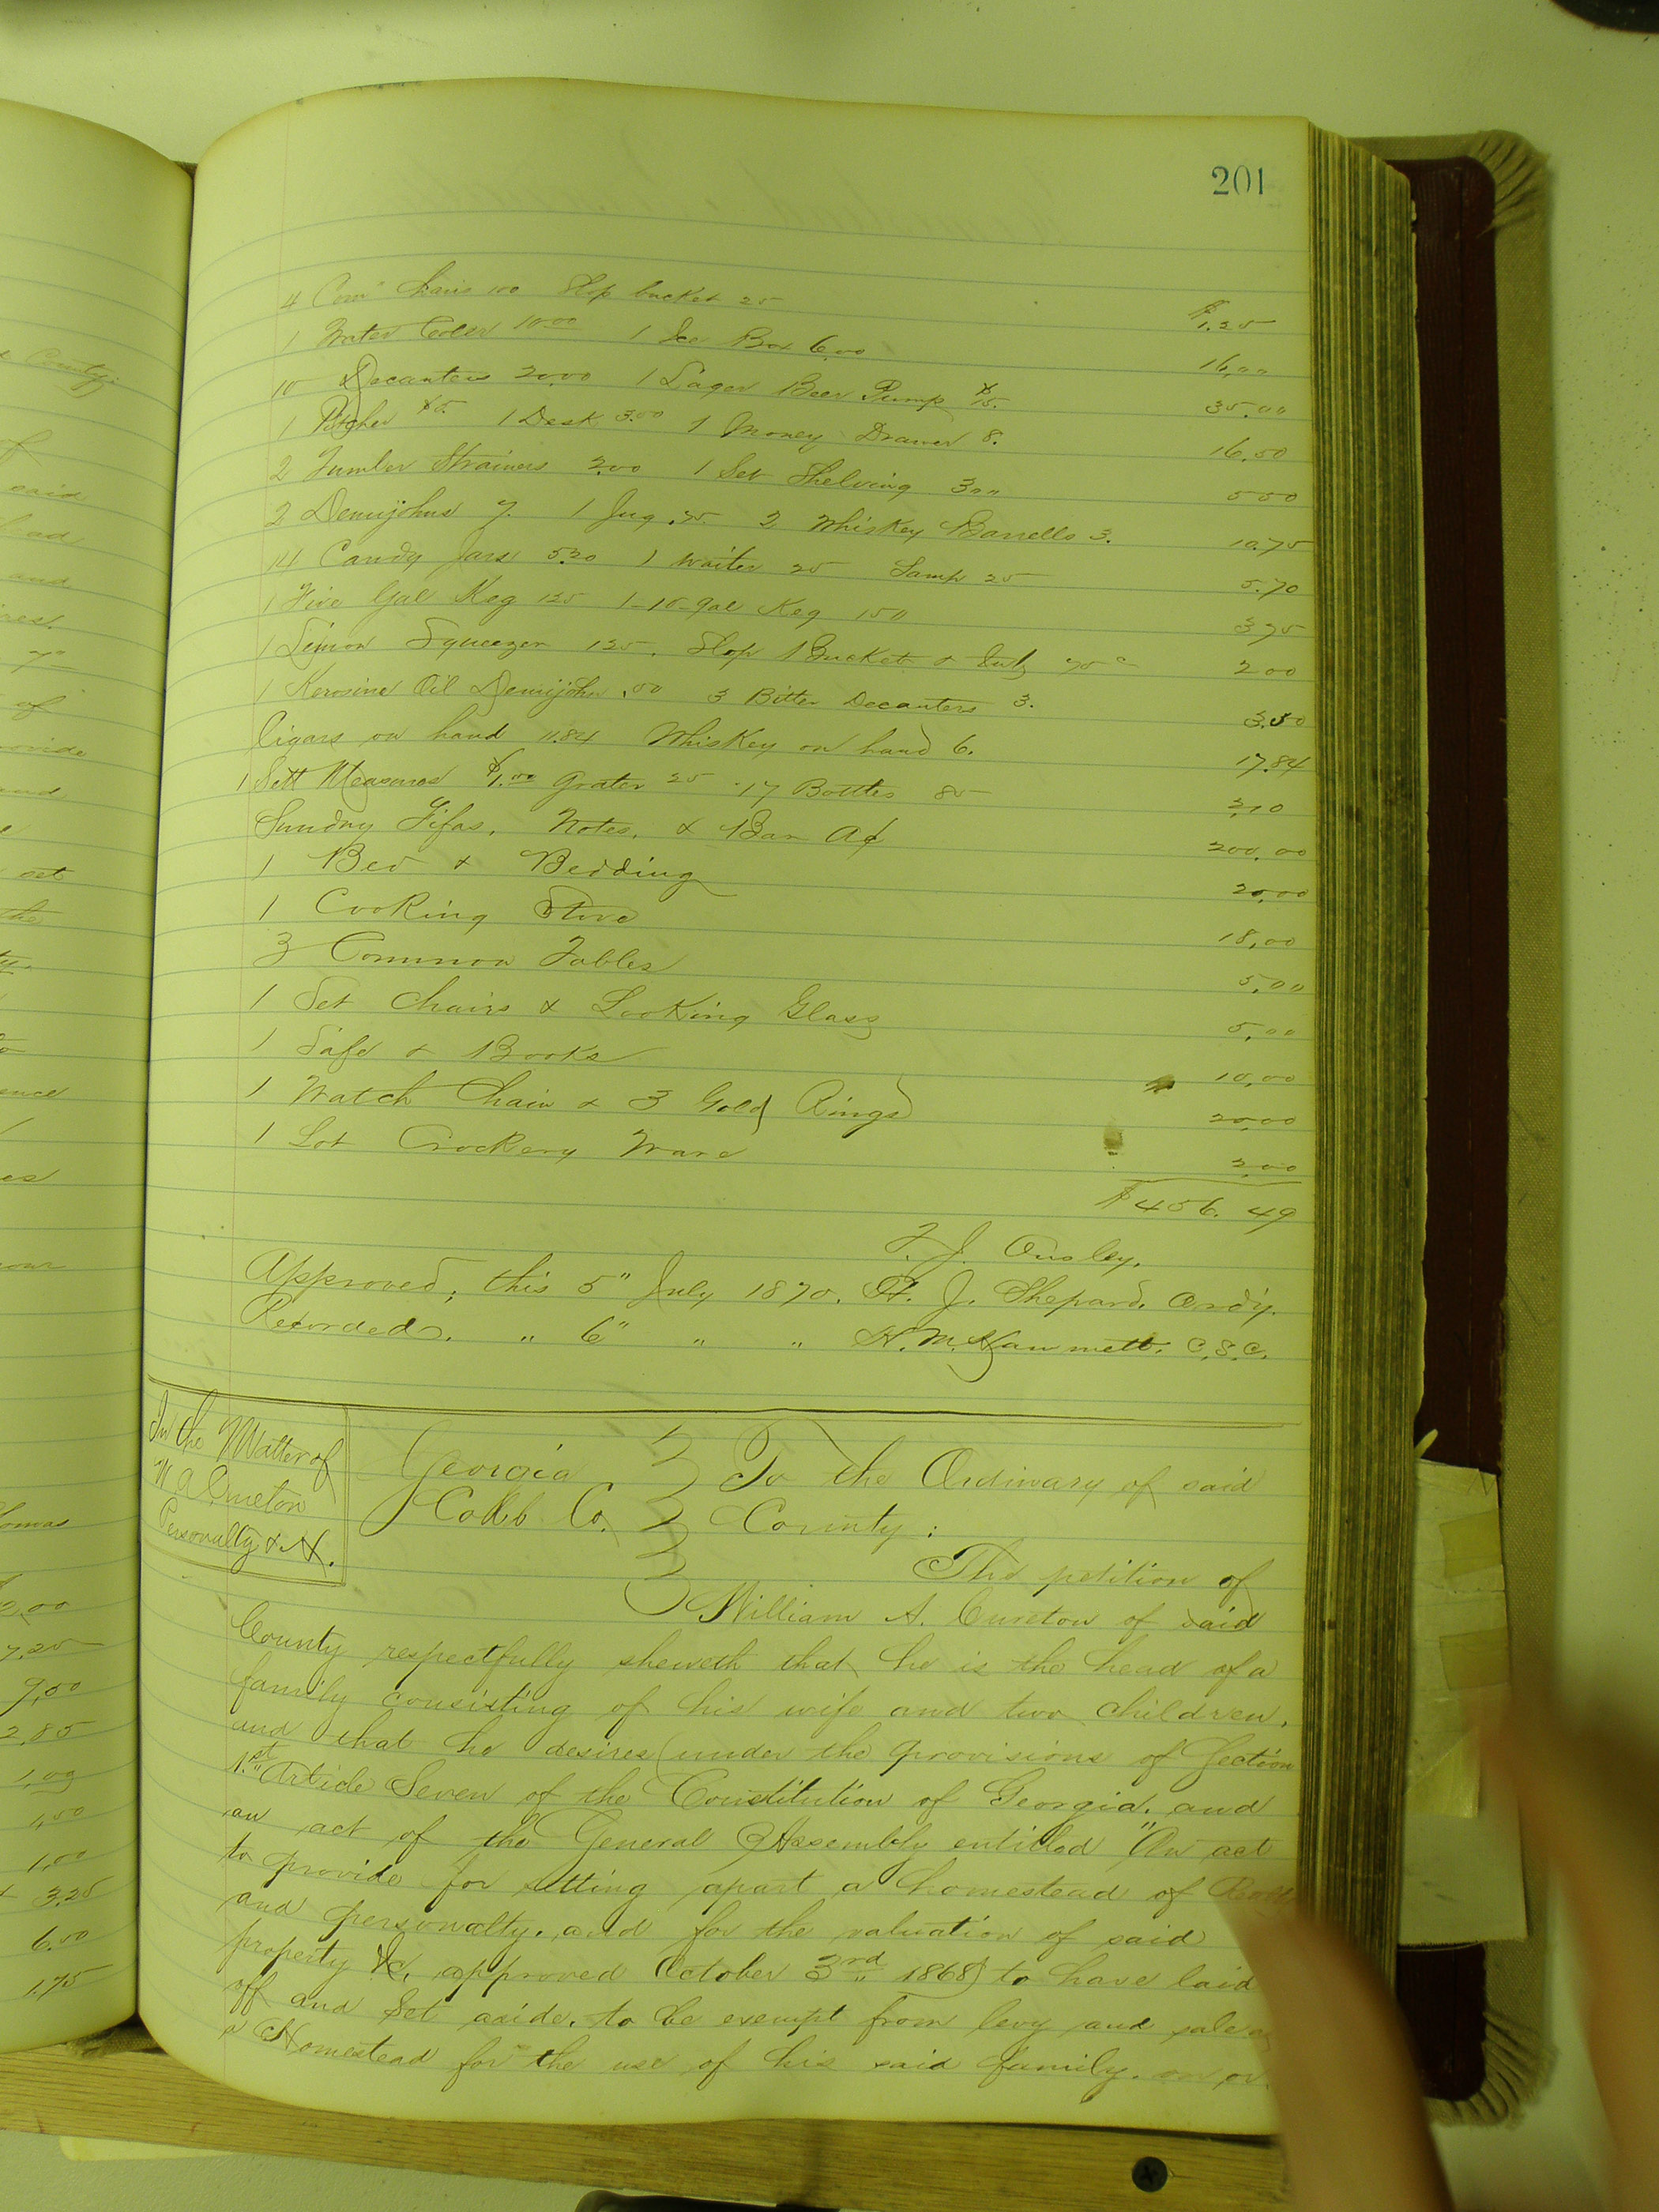 201
4 Com" Chairs 100 Slop bucket 25 $1.25
1 Water Cooler 10.00 1 Ice Box 6.00 16,00
10 Decanters 20.00 1 Lager Beer Pump $15. 35.00
1 Pitcher $5. 1 Desk 3.00 1 Money Drawer 8. 16.50
2 Tumbler Strainers 2.00 1 Set Shelving 3,00 5 00
2 Demijohns 7. 1 Jug .75 2 Whiskey Barrells 3. 10.75
14 Candy Jars 5.20 1 Waiter 25 Lamp 25 5.70
1 Five Gal Keg 125 1-10-gal Keg 150
1 Lemon Squeezer 125. Slop Bucket & tub 75c 2 00
1 Kerosine Oil Demijohn .50 3 Bitter Decanters 3. 3.50
Cigars on hand 11.84 Whiskey on hand 6. 17.84
1 Sett Measures $1.00 Grater 25 17 Bottles 85 2,10
Sundry Fifas, Notes, & Bar 200,00
1 Bed & Bedding 20,00
1 Cooking Stove 18,00
3 Common Tables 5,00
1 Set Chairs & Looking Glass 5,00
1 Safe & Books 10,00
1 Watch Chain & 3 Gold Rings 20,00
1 Lot Crockery Ware 2,00
$456.49
T. J. Ousley,
Approved, this 5" July 1870. H. J. Shepard. Ordy.
Recorded. " 6" " " H. M. Hammett. C.S.C.
In the Matter of
W A Cureton
Personalty & H.
Georgia To the Ordinary of said
Cobb Co. County:
The petition of
William A. Cureton of said
County respectfully sheweth that he is the head of a
family consisting of his wife and two children,
and that he desires (under the provisions of Section
1st Article Seven of the Constitution of Georgia, and
an act of the General Assembly entitled "An act
to provide for setting apart a homestead of
and personalty, and for the valuation of said
property &c, approved October 3rd 1868) to have laid
off and set aside, to be exempt from levy and sale
a Homestead for the use of his said family. on
County.
said
and
of
provide
set
the
Thomas
7.25
9,50
2,85
1,09
1,50
1,00
3.25
6.50
1.75